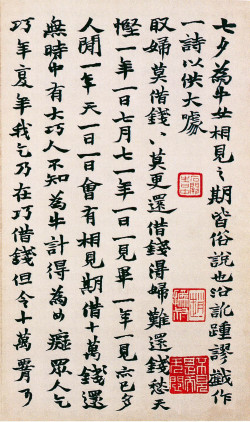 七夕為牛女相見之期皆俗說也沿訛踵謬戲作
一詩以供大噱
取婦莫借錢〻莫更還借錢得婦難還錢愁天
慳一年一日七月七一年一日一見畢一年一見亦已多
人間一年天一日一日會有相見期借十萬錢還
無時牛有大巧人不知為牛計得為女癡眾人乞
巧年夏半我乞乃在巧借錢但令十萬可